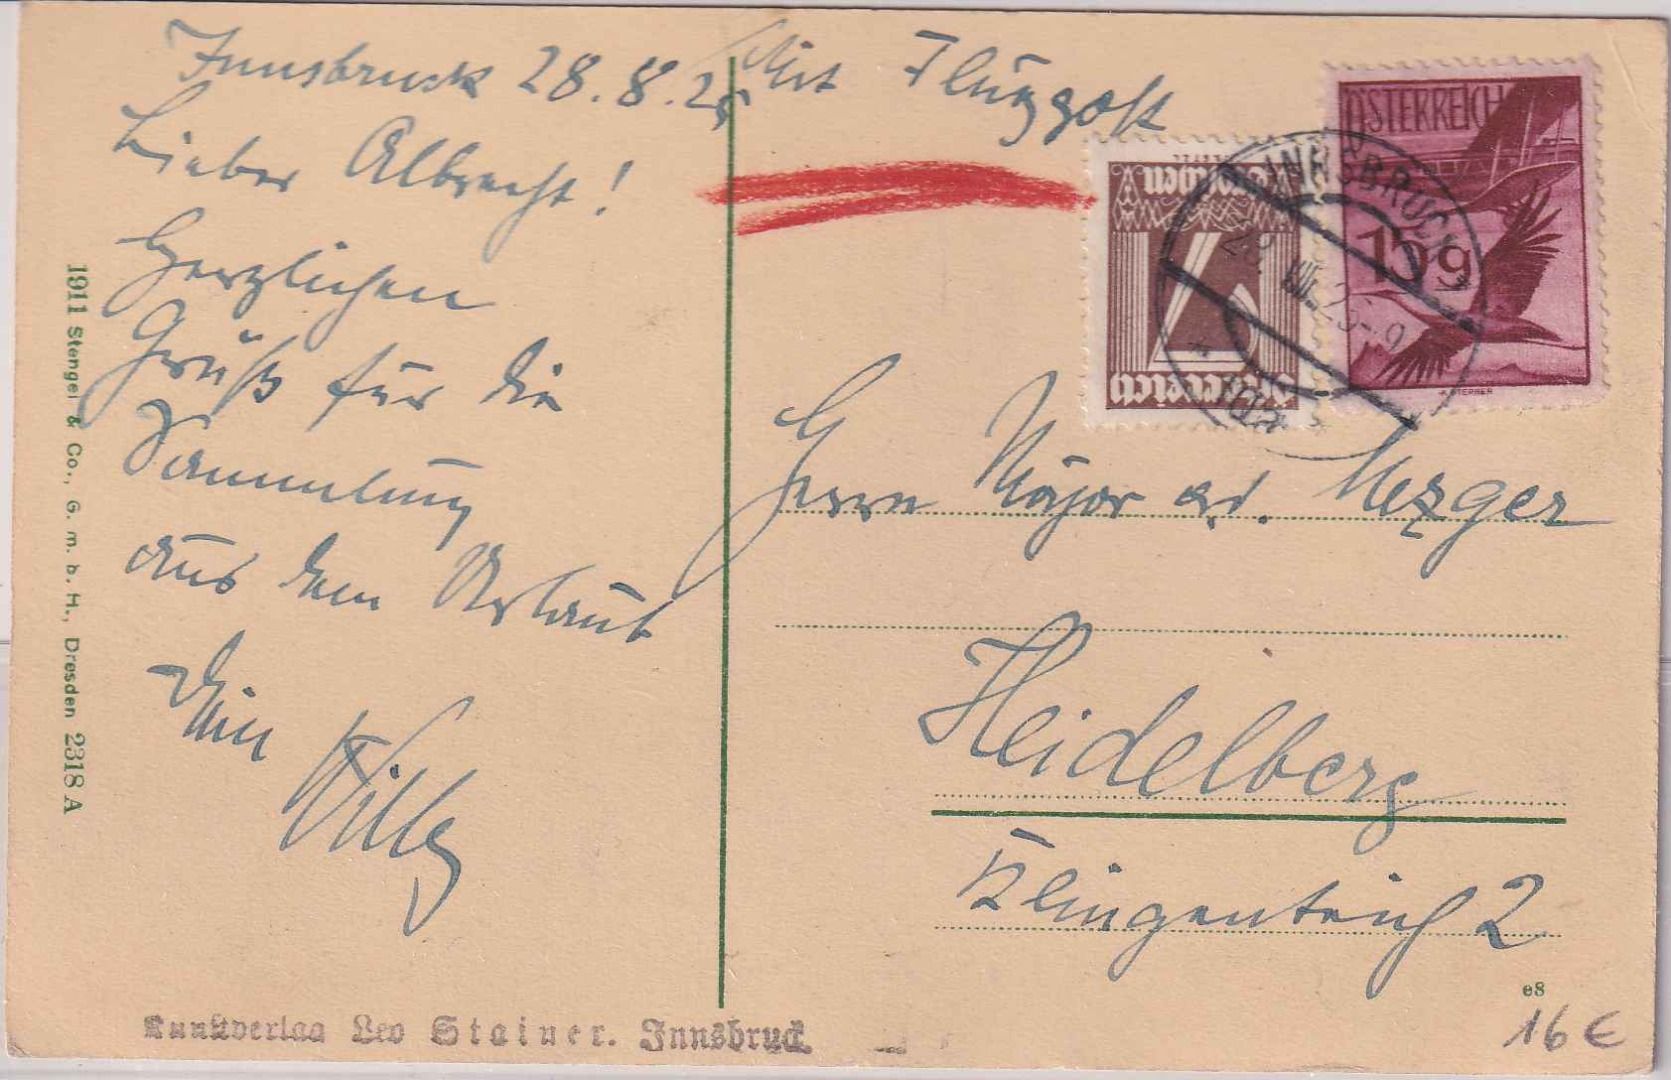 Innsbruck 28.8.25
Lieber Albrecht!
Herzlichen
Gruß für die
Sammlung
aus dem Urlaub
Dein
Willy
Mit Flugpost
ÖSTERREICH
15g
INNSBRUCK
Österreich
Herrn Major a.d. Mezger
Heidelberg
Klingenteich 2
1911 Stengel & Co., G. m. b. H., Dresden 2318 A
Kunstverlag Leo Stainer. Innsbruck.
e8
16 €